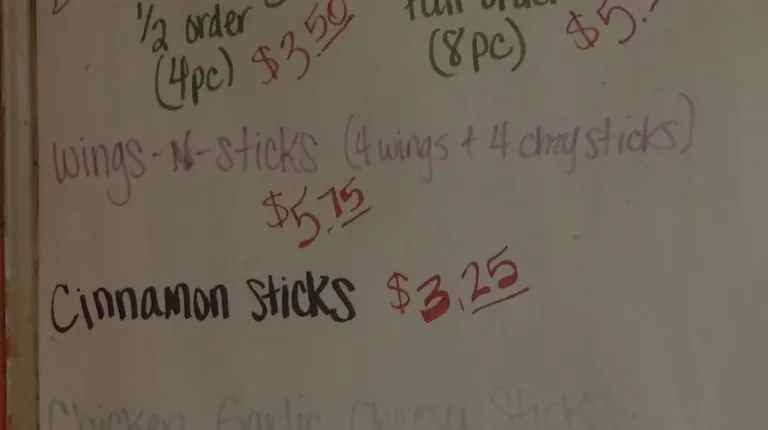 1/2 order
(4pc) $3.50
full order
(8pc) $5.
Wings-N-Sticks (4 wings + 4 chzy sticks)
$5.75
Cinnamon Sticks $3.25
Chicken Garlic Cheesy Sticks